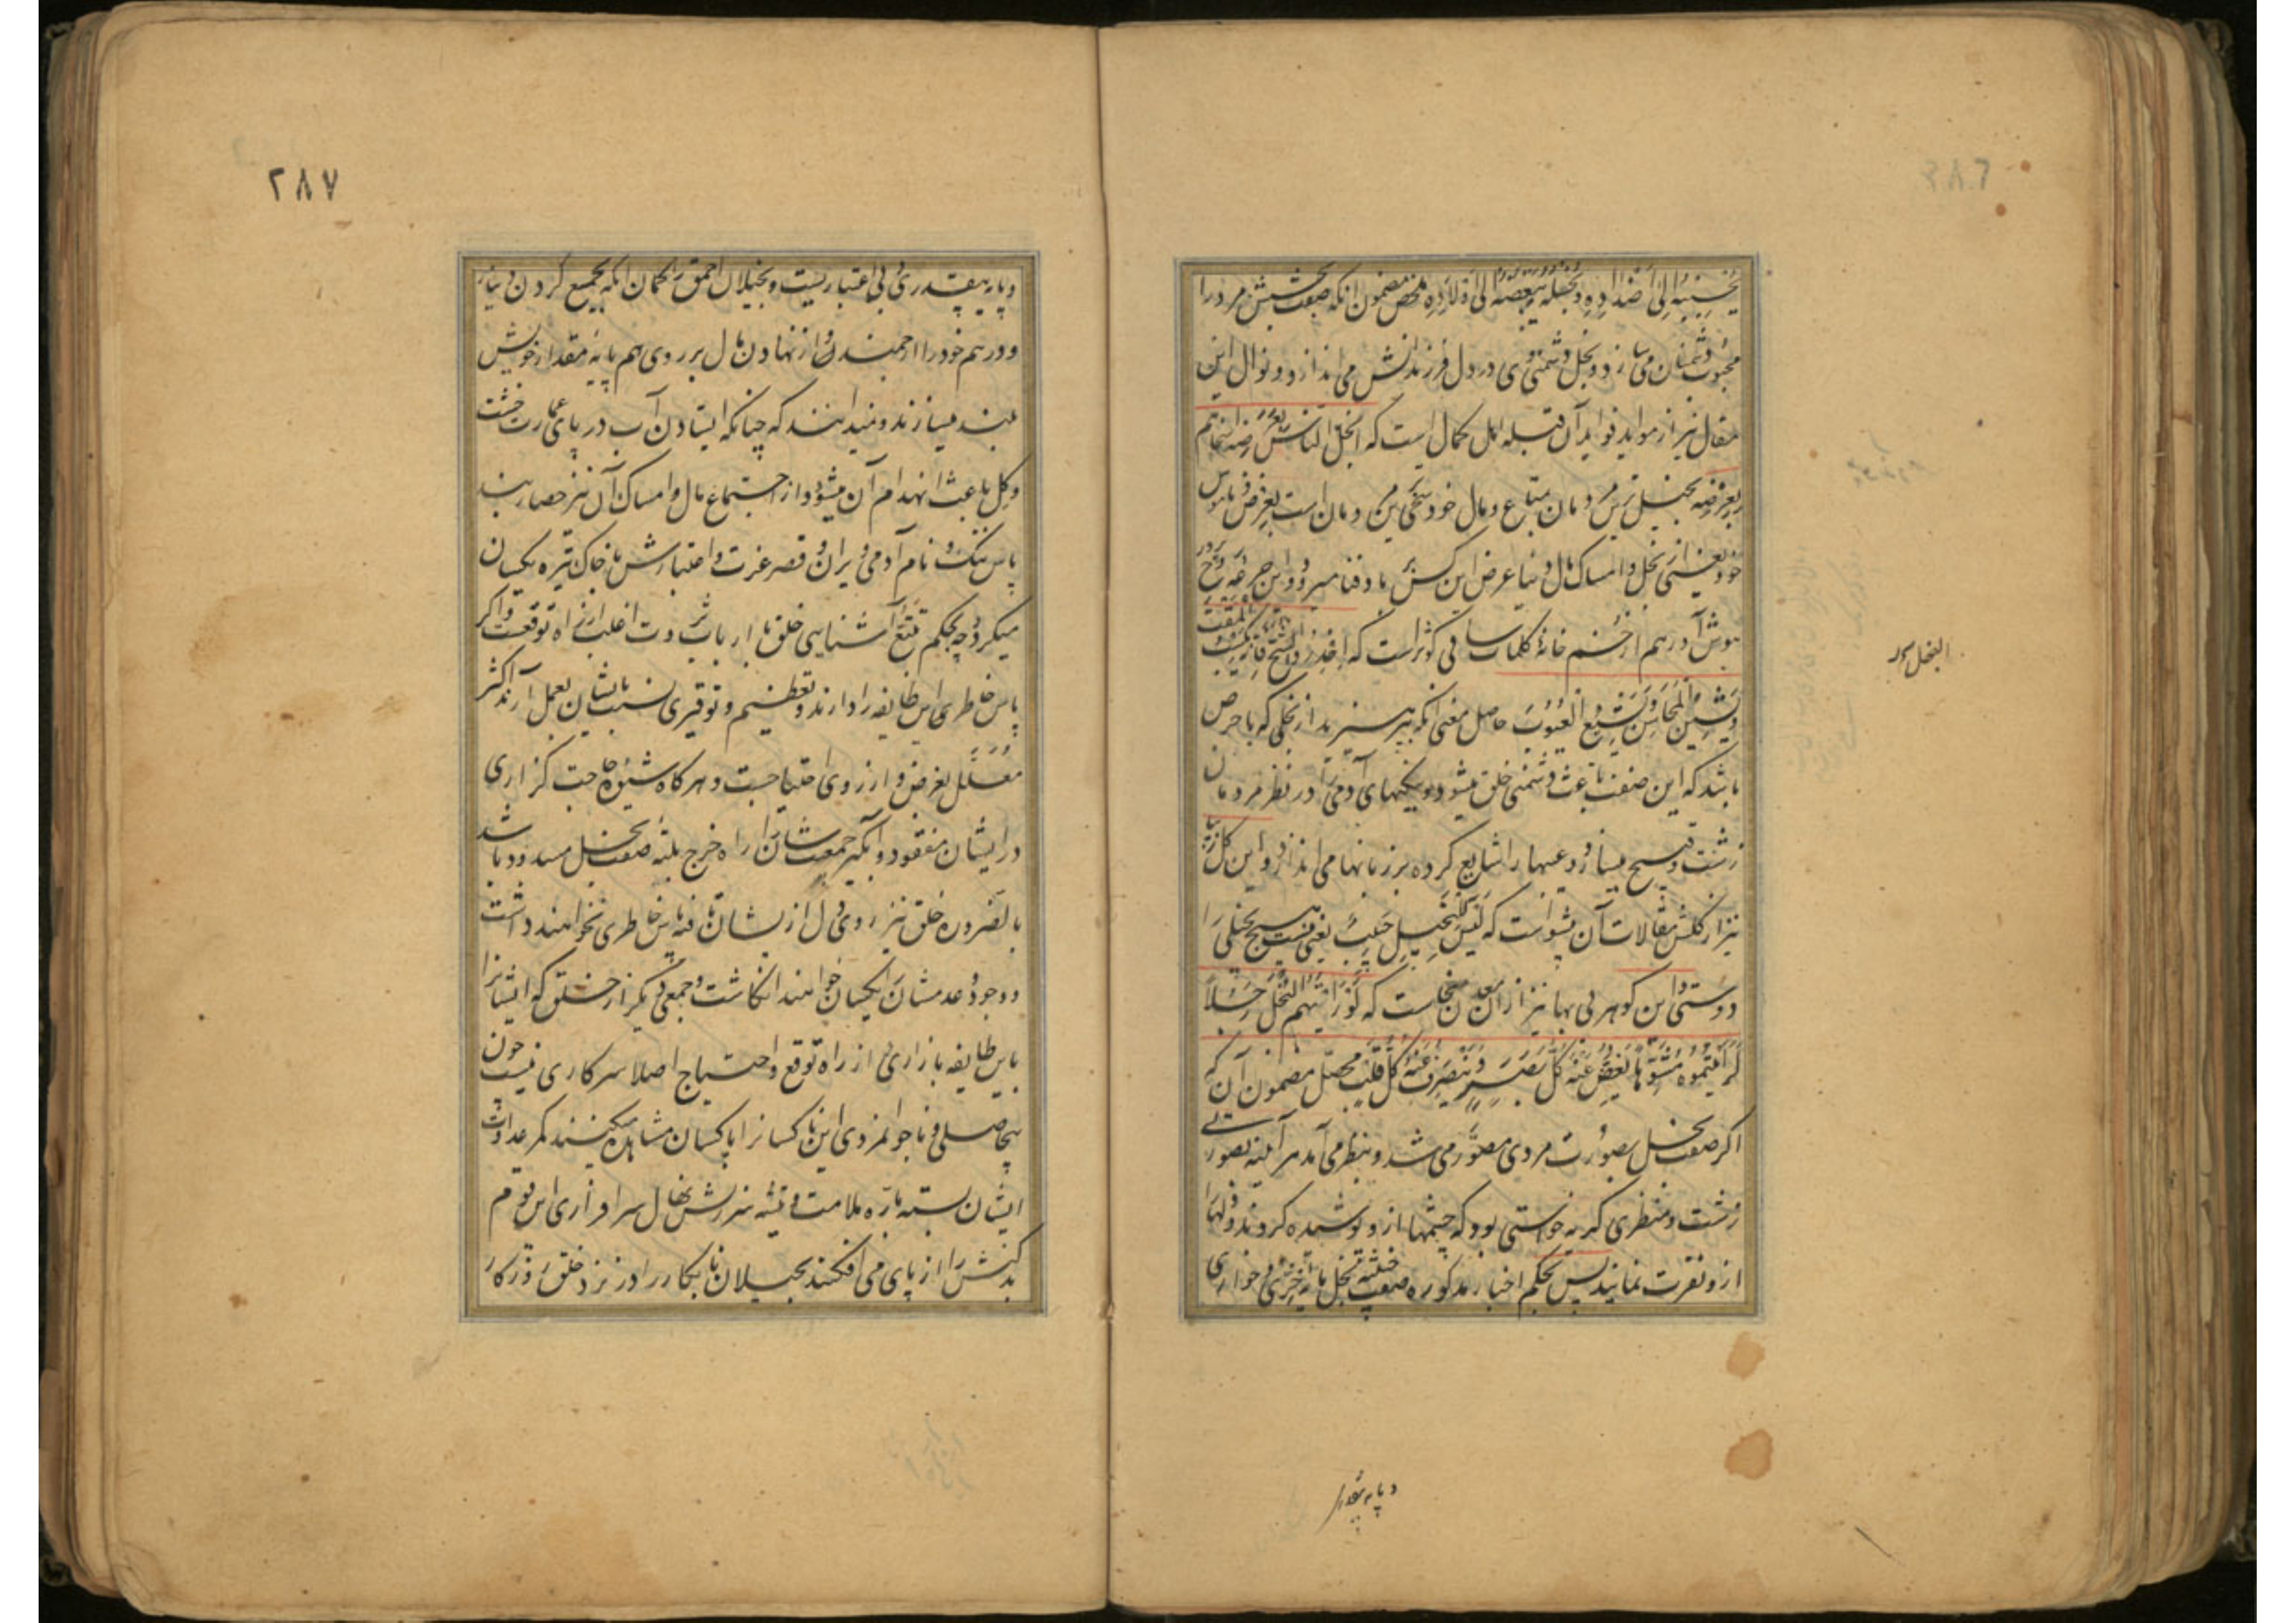 ٢٨٦
یحببه الی اضداده و بخله یبغضه الی اولاده ملخص مضمون آنکه صفت بخشش مرد را
محبوب دشمنان می سازد و بخل دشمنی وی در دل فرزندانش می اندازد و نوال این
مقال نیز از مواید فواید آن قبله اهل کمال است که ابخل الناس بعرضه اسخاهم
بعرضه بخیل ترین مردمان بمتاع و مال خود سخی ترین مردمان است بعرض و ناموس
خود یعنی از بخل و امساک مال دنیا عرض این کس بباد فنا میرود و این جرعه روح پرور
هوش آور هم از خم خانهٔ کلمات ساقی کوثر است که احذروا الشح فانه یکسب المقت
و یشین المحاسن و یشیع العیوب حاصل معنی آنکه بپرهیزید از بخلی که با حرص
باشد که این صفت باعث دشمنی خلق میشود و نیکیهای آدمی را در نظر مردمان
زشت و قبیح میسازد و عیبها را شایع کرده بر زبانها می اندازد و این گل تازه
نیز از گلشن مقالات آن پیشواست که لیس لبخیل حبیب یعنی نیست هیچ بخیلی را
دوستی و این گوهر بی بها نیز از آن معدن سخاست که لو رایتم البخل رجلا
لرایتموه مشوها یغض عنه کل بصر و ینصرف عنه کل قلب محصل مضمون آن که
اگر صفت بخل بصورت مردی مصور می شد و بنظر می آمد هر آینه بصورتی
زشت و منظری کریه خواستی بود که چشمها از و پوشیده گردند و دلها
ازو نفرت نمایند پس بحکم اخبار مذکوره صفت بخل مایهٔ خواری
البخل
و پایه بیقدری
٢٨٧
و پایه بیقدری و بی اعتباریست و بخیلان احمق را گمان آنکه بجمع کردن دینار
و درهم خود را ارجمند و از نهادن مال بر روی هم پایهٔ مقدار خویش
بلند میسازند و نمیدانند که چنانکه ایستادن آب در پای عمارت خشت
و گل باعث انهدام آن میشود از اجتماع مال و امساک آن نیز حصار بند
پاس ننگ و نام آدمی ویران و قصر عزت و اعتبارش با خاک تیره یکسان
میگردد چه بحکم تتبع آشنایی خلق با ارباب ثروت اغلب از راه توقعست و اگر
پاس خاطری این طایفه را دارند و تعظیم و توقیری نسبت بایشان بعمل آرند اکثر
معلل بغرض و از روی احتیاجست و هر گاه شیوه حاجت گزاری
در ایشان مفقود و آبگیر جمعیت شان را راه خرج بلته صفت بخل مسدود باشد
بالضروره خلق نیز روی دل از یشان تافته پاس خاطری نخواهند داشت
و وجود و عدمشان را یکسان خواهند انگاشت و جمعی دیگر از خلق که ایشانرا
باین طایفه بازاری از راه توقع و احتیاج اصلا سر کاری نیست چون
بیحاصلی و ناجوانمردی این ناکسانرا با کسان مشاهده میکنند کمر عداوت
ایشان بسته باره ملامت و تیشه سرزنش نهال سرافرازی این قوم
بدکنش را از پای می افکنند بخیلان نابکار را در نزد خلق روزگار